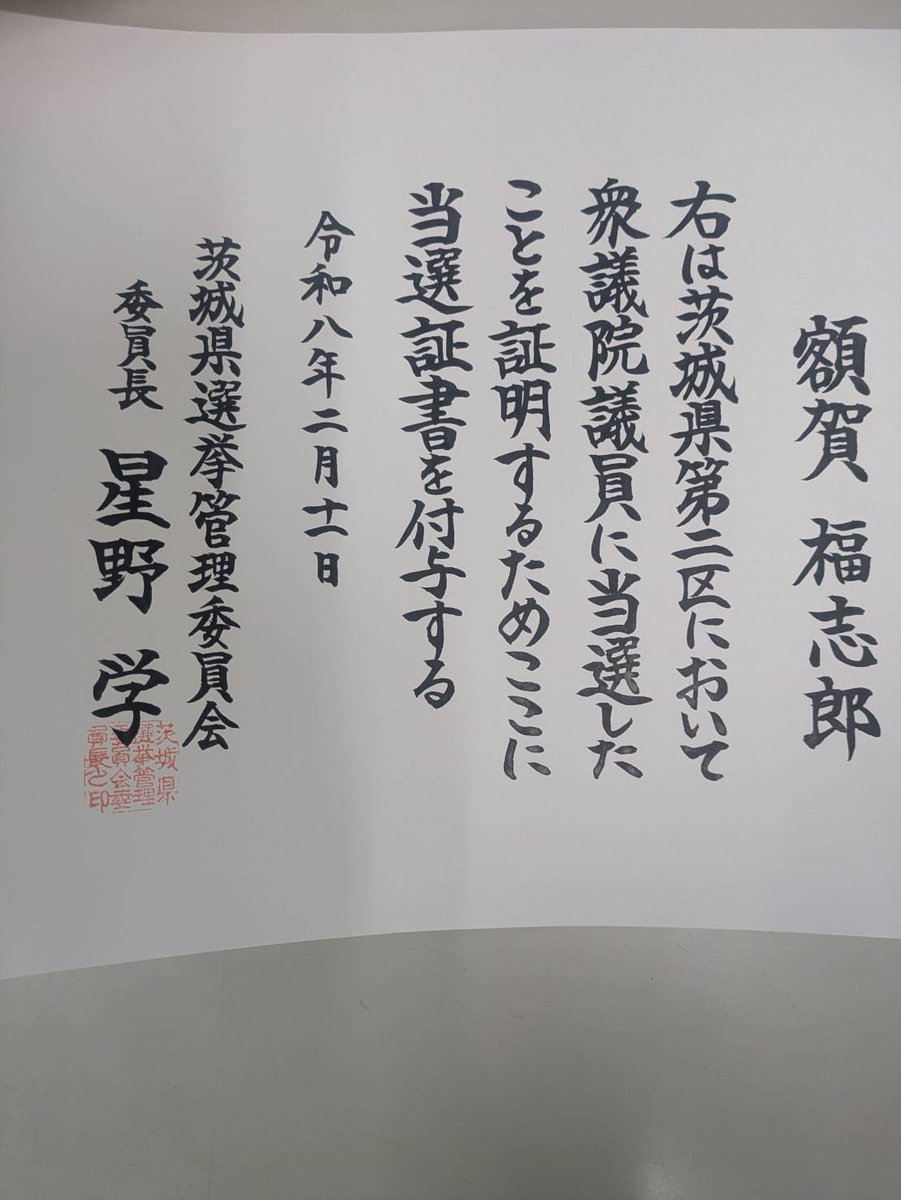 額賀 福志郎
右は茨城県第二区において
衆議院議員に当選した
ことを証明するためここに
当選証書を付与する
令和八年二月十一日
茨城県選挙管理委員会
委員長 星野 学
茨城県
選挙管理
委員会委
員長之印